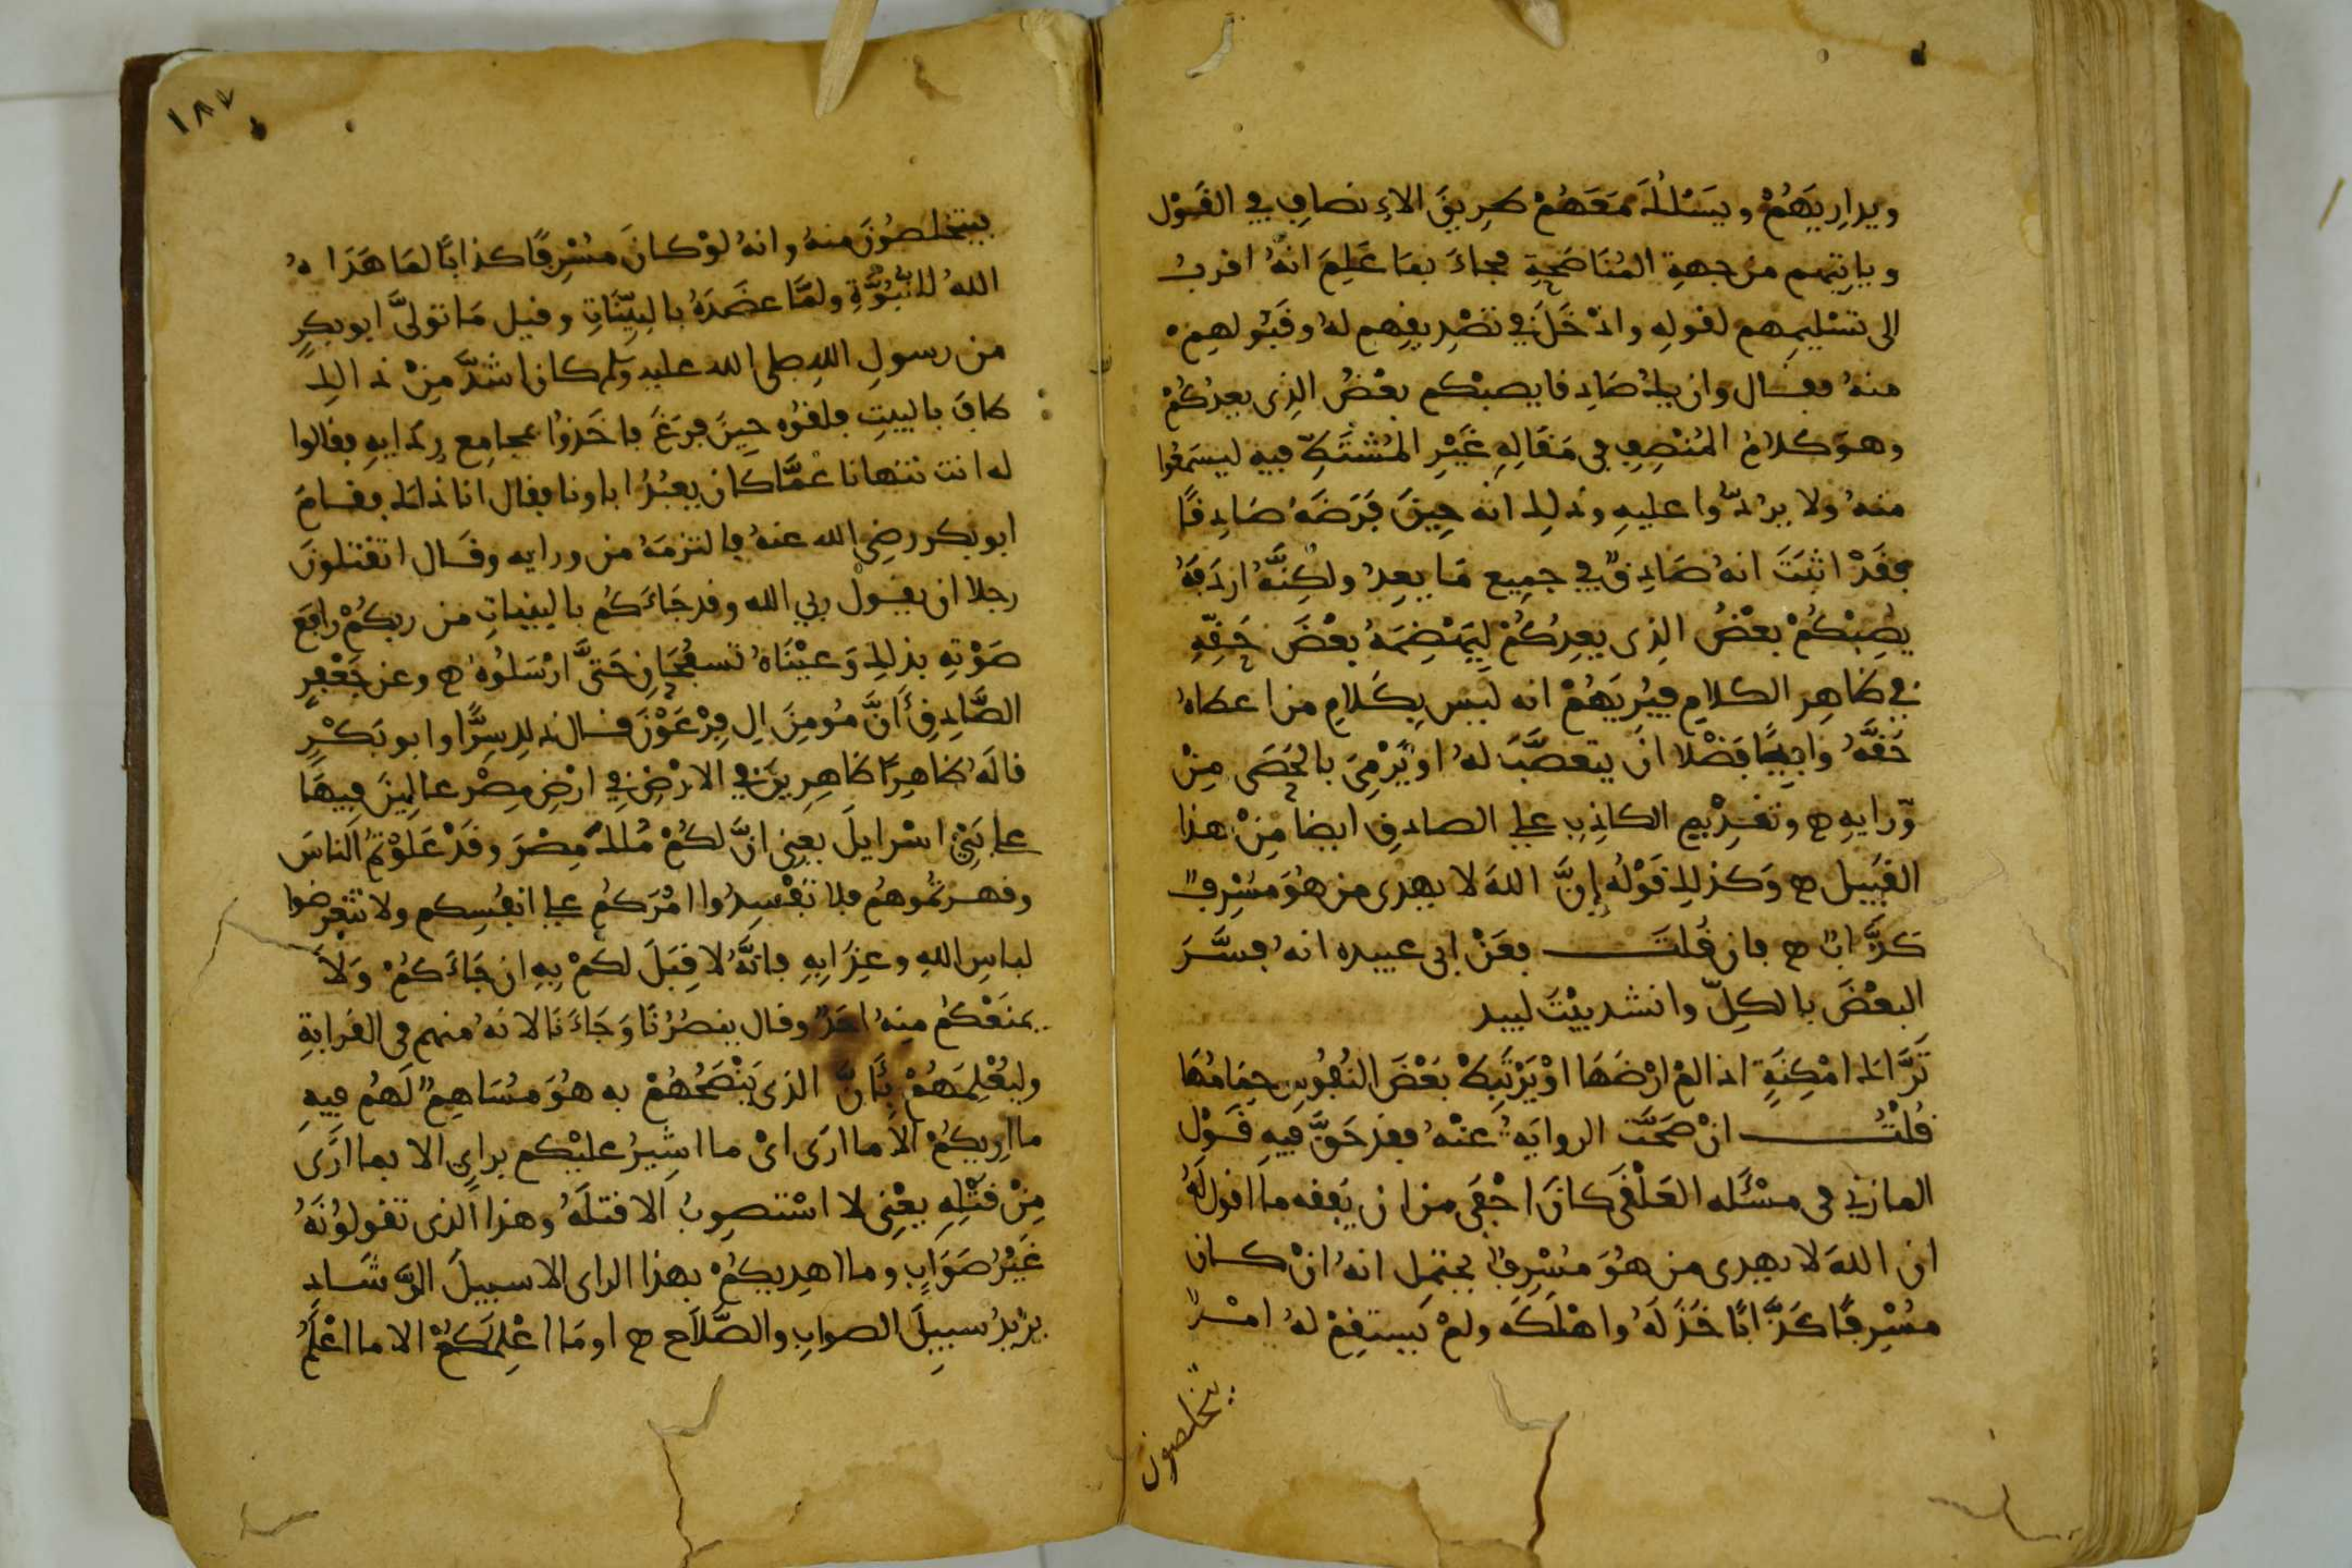 ويداريهم ويسلك معهم طريق الانصاف في القول
وياتيهم من جهة المناصحة فجاء بما علم انه اقرب
الى تسليمهم لقوله وادخل في تصديقهم له وقبولهم
منه فقال وان يك صادقا يصبكم بعض الذى يعدكم
وهو كلام المنصف في مقاله غير المشتط فيه ليسمعوا
منه ولا يردوا عليه وذلك انه حين فرضه صادقا
فقد اثبت انه صادق في جميع ما يعد ولكنه اردفه
يصبكم بعض الذى يعدكم ليهضمه بعض حقه
في ظاهر الكلام فيريهم انه ليس بكلام من اعطاه
حقه وافيا فضلا ان يتعصب له او يرمى بالحصى من
ورايه وتقديم الكاذب على الصادق ايضا من هذا
القبيل وكذلك قوله إن الله لا يهدى من هو مسرف
كذاب فان قلت فعن ابى عبيده انه فسر
البعض بالكل وانشد بيت لبيد
تراك امكنة اذا لم ارضها او يرتبط بعض النفوس حمامها
قلت ان صحت الرواية عنه فقد حق فيه قول
المازني في مسئله العلقى كان اجفى من ان يفقه ما اقول له
ان الله لا يهدى من هو مسرف يحتمل انه ان كان
مسرفا كذابا خذله واهلكه ولم يستقم له امر
يتخلصون
١٨٧
يتخلصون منه وانه لو كان مسرفا كذابا لما هداه
الله للنبوة ولما عضده بالبينات وقيل ما تولى ابو بكر
من رسول الله صلى الله عليه وسلم كان اشد من ذالك
طاف بالبيت فلقوه حين فرغ فاخذوا بمجامع ردايه فقالوا
له انت تنهانا عما كان يعبد اباونا فقال انا ذاك فقام
ابو بكر رضي الله عنه فالتزمه من ورايه وقال اتقتلون
رجلا ان يقول ربي الله وقد جاءكم بالبينات من ربكم رافع
صوته بذلك وعيناه تسفحان حتى ارسلوه وعن جعفر
الصادق أن مومن ال فرعون قال ذلك سرا وابو بكر
قاله ظاهرا ظاهرين في الارض في ارض مصر عالين فيها
على بني اسرايل يعني ان لكم ملك مصر وقد علوتم الناس
وقهرتموهم فلا تفسدوا امركم على انفسكم ولا تتعرضوا
لباس الله وعذابه فانه لا قبل لكم به ان جاءكم ولا
يمنعكم منه احد وقال ينصرنا وجاءنا لانه منهم في القرابة
وليعلمهم بأن الذى ينصحهم به هو مساهم لهم فيه
ما اريكم الا ما ارى اى ما اشير عليكم براي الا بما ارى
من قتله يعنى لا استصوب الا قتله وهذا الذى تقولونه
غير صواب وما اهديكم بهذا الراى الا سبيل الرشاد
يريد سبيل الصواب والصلاح او ما اعلمكم الا ما اعلم